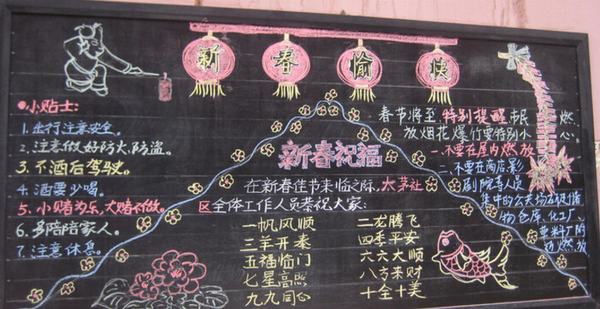 新春愉快
小贴士:
1.出行注意安全。
2.注意做好防火、防盗。
3.不酒后驾驶。
4.酒要少喝。
5.小赌为乐,大赌不做。
6.多陪陪家人。
7.注意休息。
新春祝福
在新春佳节来临之际,太茅社
区全体工作人员恭祝大家:
一帆风顺 二龙腾飞
三羊开泰 四季平安
五福临门 六六大顺
七星高照 八方来财
九九同心 十全十美
春节将至特别提醒市民燃
放烟花爆竹要特别小心。
一、不要在屋内燃放
二、不要在商店、影
剧院等人员
集中的公共场所
物仓库、化工厂、
燃放